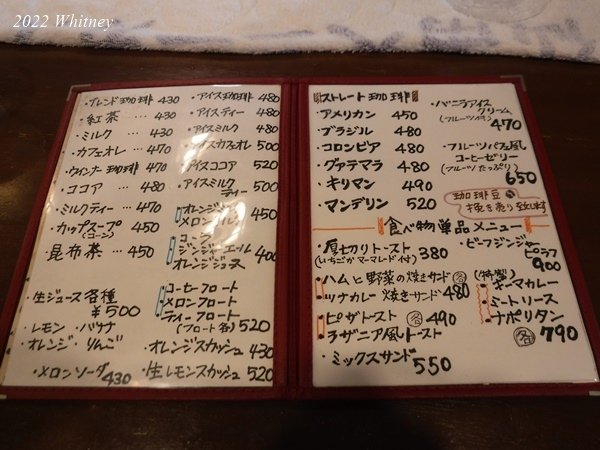 2022 Whitney
・ブレンド珈琲 430
・紅茶 … 430
・ミルク … 430
・カフェオレ … 470
・ウィンナー珈琲 470
・ココア … 480
・ミルクティー … 470
・カップスープ 450
(コーン)
・昆布茶 … 450
・生ジュース各種
￥500
・レモン ・バナナ
・オレンジ ・りんご
・メロンソーダ 430
・アイス珈琲 480
・アイスティー 480
・アイスミルク 480
・アイスカフェオレ 500
・アイスココア 520
・アイスミルクティー 500
オレンジ
メロンミルク 450
コーラ
ジンジャーエール
オレンジジュース 400
コーヒーフロート
メロンフロート
ティーフロート
(フロート各) 520
・オレンジスカッシュ 430
・生レモンスカッシュ 520
ストレート珈琲
・アメリカン 450
・ブラジル 480
・コロンビア 480
・グァテマラ 480
・キリマン 490
・マンデリン 520
・バニラアイスクリーム
(フルーツ付) 470
・フルーツパフェ風
コーヒーゼリー
(フルーツたっぷり) 650
珈琲豆
挽き売り
食べ物単品メニュー
・厚切りトースト 380
(いちごかマーマレード付)
・ハムと野菜の焼きサンド 各
ツナカレー焼きサンド 480
・ピザトースト 各 490
・ラザニア風トースト
・ミックスサンド 550
・ビーフジンジャーピラフ
900
(特製)
キーマカレー
ミートソース
ナポリタン
各 790